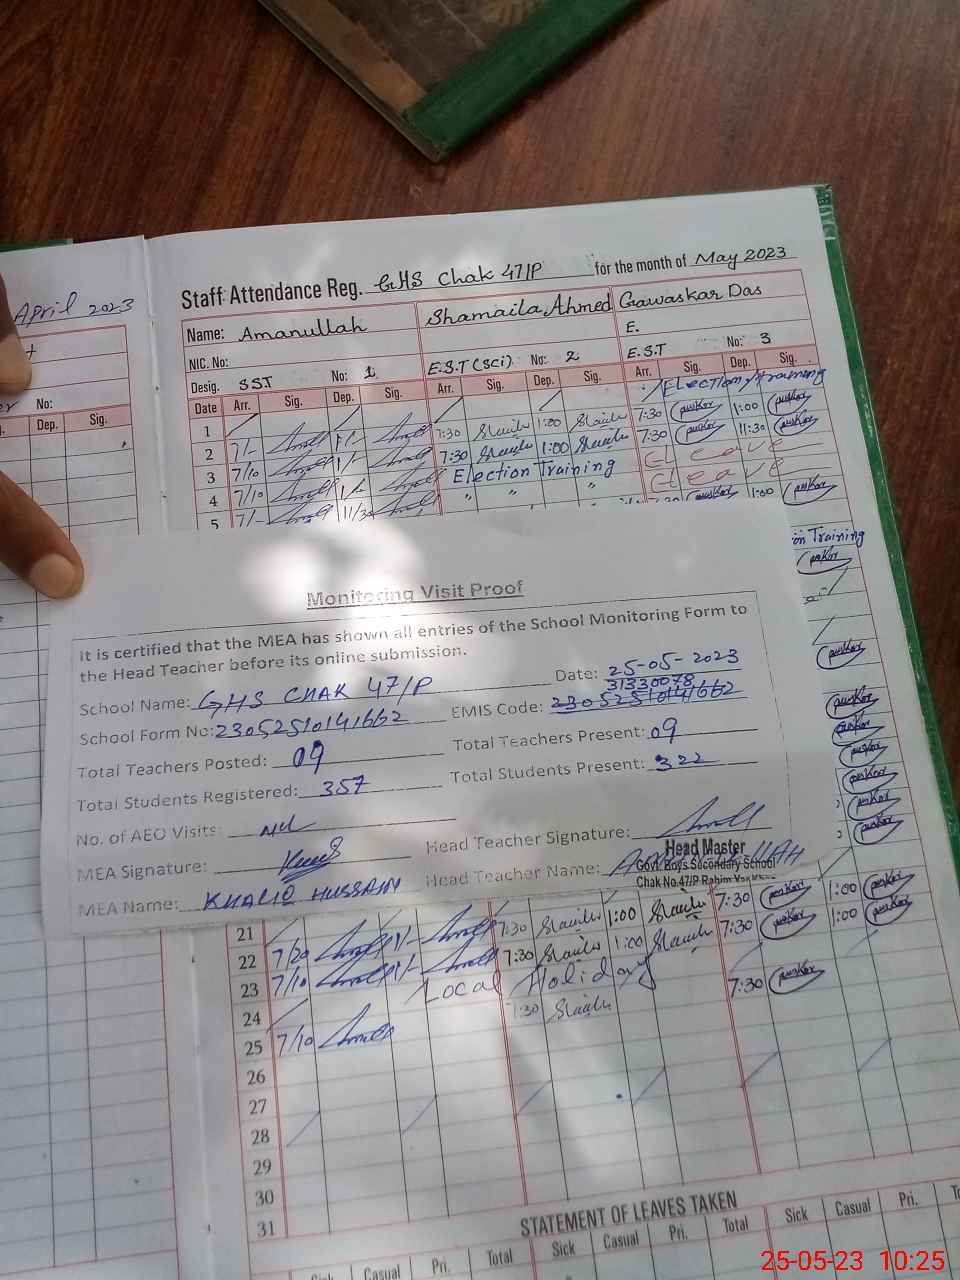 April 2023
No:
Dep. Sig.
Staff Attendance Reg. GHS Chak 47/P for the month of May 2023
Name: Amanullah Shamaila Ahmed Gawaskar Das
E.
NIC. No:
Desig. SST No: 1 E.S.T (Sci) No: 2 E.S.T No: 3
Date Arr. Sig. Dep. Sig. Arr. Sig. Dep. Sig. Arr. Sig. Dep. Sig.
1 Election training
2 7/- 1/- 7:30 1:00 7:30 1:00
3 7/10 1/- 7:30 1:00 7:30 11:30
4 7/10 Election Training Leave
5 7/- 11/30 " " " Leave
1:00
on Training
Monitoring Visit Proof
It is certified that the MEA has shown all entries of the School Monitoring Form to
the Head Teacher before its online submission.
School Name: GHS CHAK 47/P Date: 25-05-2023
31330078
School Form No: 23052510141662 EMIS Code: 23052510141662
Total Teachers Posted: 09 Total Teachers Present: 09
Total Students Registered: 357 Total Students Present: 322
No. of AEO Visits: Nil
MEA Signature: Head Teacher Signature:
Head Master
MEA Name: KHALID HUSSAIN Head Teacher Name: AMANULLAH
Govt. Boys Secondary School
Chak No.47/P Rahim Yar
7:30 1:00
21 7:30 1:00 7:30 1:00
22 7/20 1/- 7:30 1:00
23 7/10 1/- Local Holiday
24 7:30
25 7/10 7:30
26
27
28
29
30
31
STATEMENT OF LEAVES TAKEN
Sick Casual Pri. Total Sick Casual Pri. Total Sick Casual Pri.
25-05-23 10:25